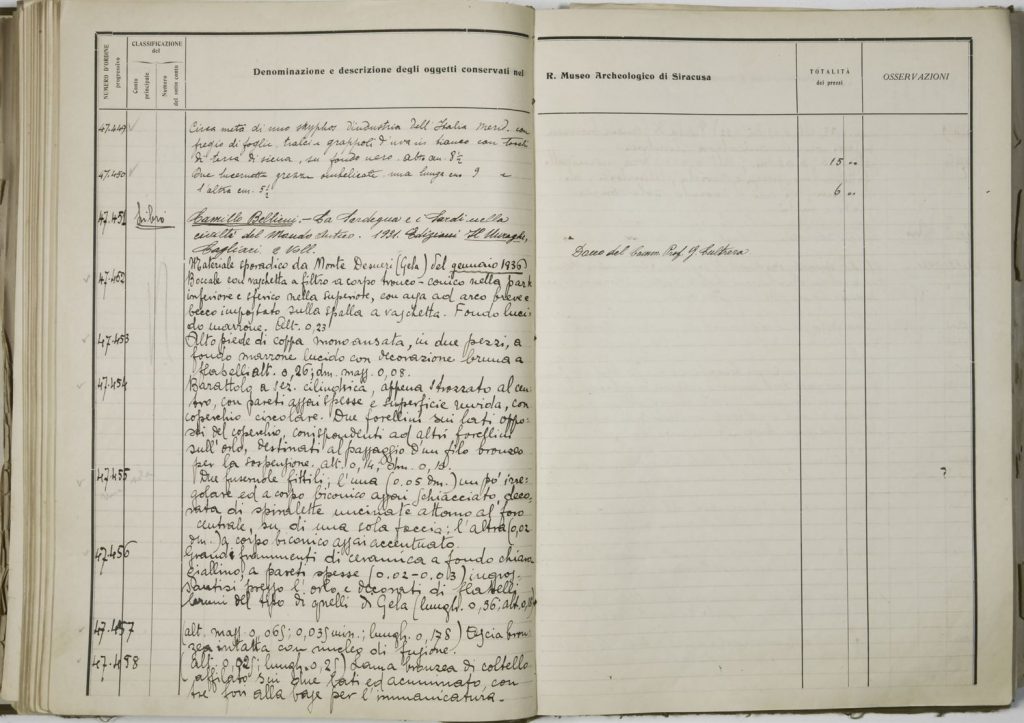 NUMERO D'ORDINE
progressivo
CLASSIFICAZIONE
del
Conto
principale
Numero
del sotto conto
Denominazione e descrizione degli oggetti conservati nel
R. Museo Archeologico di Siracusa
TOTALITÀ
dei prezzi
OSSERVAZIONI
47.449 Circa metà di uno skyphos d'industria dell'Italia merid. con
fregio di foglie, tralci e grappoli d'uva in bianco con tocchi
di terra di siena, su fondo nero. alto cm. 8½
15 "
47.450 Due lucernette grezze ombelicate una lunga cm 9 e
l'altra cm. 5½
6 "
47.451 Libri Camillo Bellieni - La Sardegna e i Sardi nella
civiltà del Mondo Antico. - 1931. Edizioni Il Nuraghe,
Cagliari 2 Voll.
Dono del Comm. Prof. G. Cultrera
Materiale sporadico da Monte Desueri (Gela) del gennaio 1936)
47.452 Boccale con vaschetta a filtro a corpo tronco-conico nella parte
inferiore e sferico nella superiore, con ansa ad arco breve e
becco impostato sulla spalla a vaschetta. Fondo luci-
do marrone. Alt. 0,23
47.453 Alto piede di coppa monoansata, in due pezzi, a
fondo marrone lucido con decorazione bruna a
flabelli alt. 0,26; dm. mass. 0,08.
47.454 Barattolo a sez. cilindrica, appena strozzato al cen-
tro, con pareti assai spesse e superficie ruvida, con
coperchio circolare. Due forellini sui lati oppo-
sti del coperchio, corrispondenti ad altri forellini
sull'orlo, destinati al passaggio d'un filo bronzeo
per la sospensione. alt. 0,14; dm. 0,10.
47.455 Due fuseruole fittili; l'una (0.05 dm.) un po' irre-
golare ed a corpo biconico assai schiacciato, deco-
rata di spiralette uncinate attorno al foro
centrale, su di una sola faccia; l'altra (0,02
dm.) a corpo biconico assai accentuato.
?
47.456 Grandi frammenti di ceramica a fondo chiaro
giallino, a pareti spesse (0.02-0.013) ingros-
santisi presso l'orlo, e decorati di flabelli
bruni del tipo di quelli di Gela (lungh. 0,36; alt.
47.457 (alt. mass. 0,065; 0,035 min.; lungh. 0,178) Ascia bron-
zea intatta con nucleo di fusione.
47.458 (alt. 0,025; lungh. 0,25) Lama bronzea di coltello
affilato sui due lati ed acuminato, con
tre fori alla base per l'immanicatura.